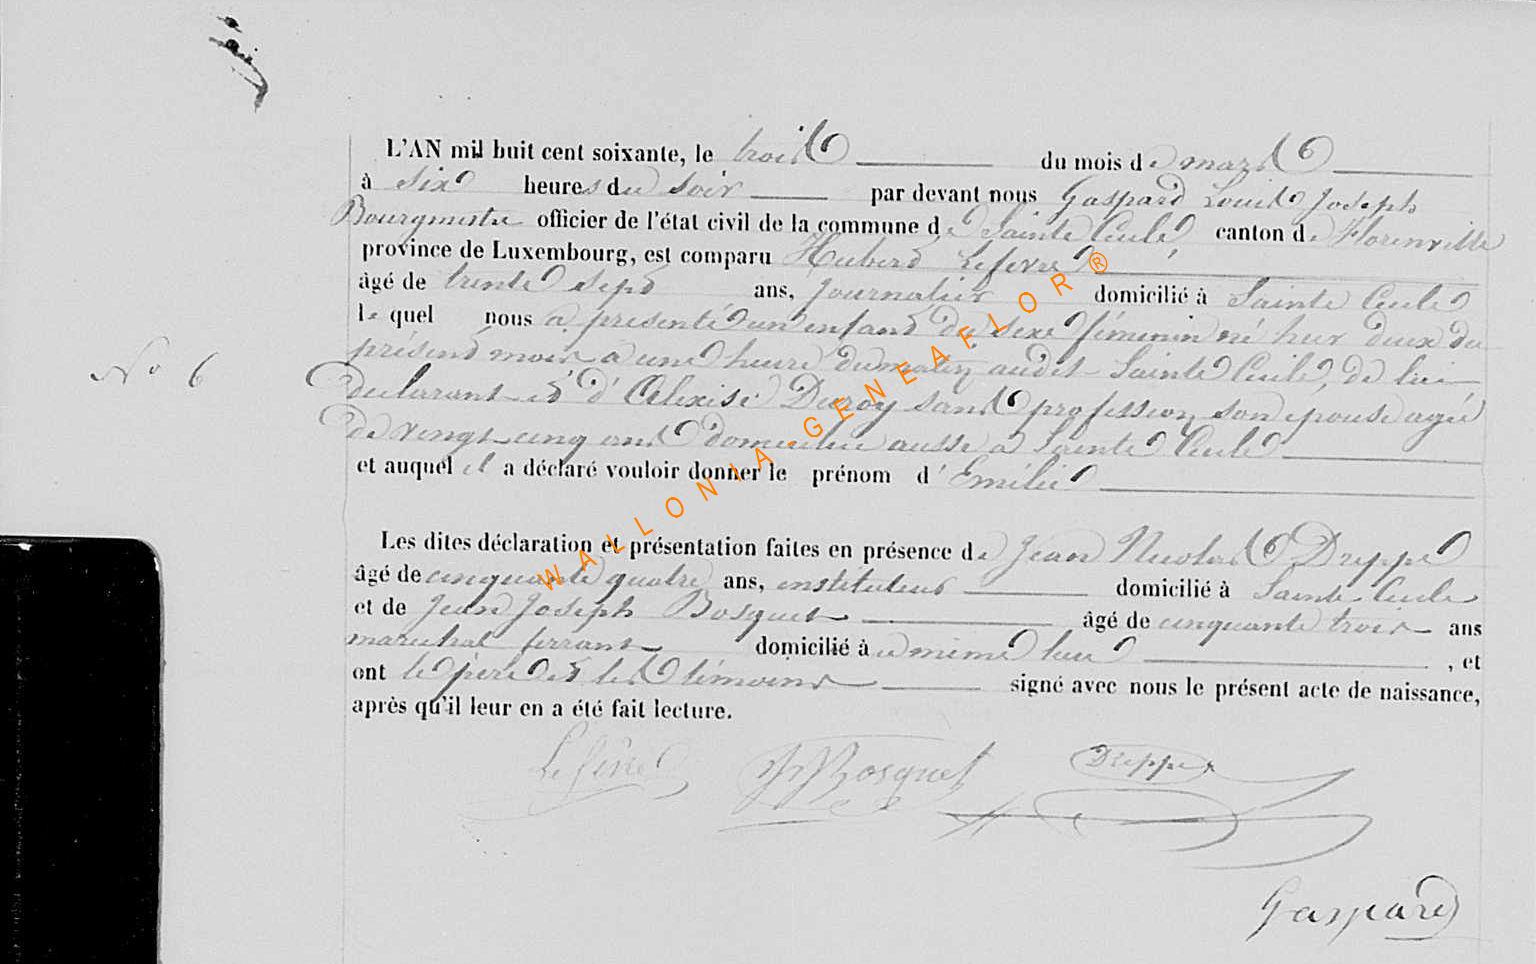 L'AN mil huit cent soixante, le trois du mois de mars
à six heures du soir par devant nous Gaspard Louis Joseph
Bourgmestre officier de l'état civil de la commune de Sainte Cecile canton de Florenville
province de Luxembourg, est comparu Hubert Lefevre
âgé de trente sept ans, Journalier domicilié à Sainte Cecile
le quel nous a présenté un enfant du sexe féminin né hier deux du
N° 6
présent mois à une heure du matin audit Sainte Cecile, de lui
declarant et d'Alexise Duroy sans profession son epouse agée
de vingt cinq ans domiciliée aussi a Sainte Cecile
et auquel il a déclaré vouloir donner le prénom d'Emélie
Les dites déclaration et présentation faites en présence de Jean Nicolas Dreppe
âgé de cinquante quatre ans, instituteur domicilié à Sainte Cecile
et de Jean Joseph Bosquet âgé de cinquante trois ans
marechal ferrant domicilié à même lieu , et
ont le père et les témoins signé avec nous le présent acte de naissance,
après qu'il leur en a été fait lecture.
Lefevre JJBosquet Dreppe
Gaspard
WALLONIA-GENEAFLOR®